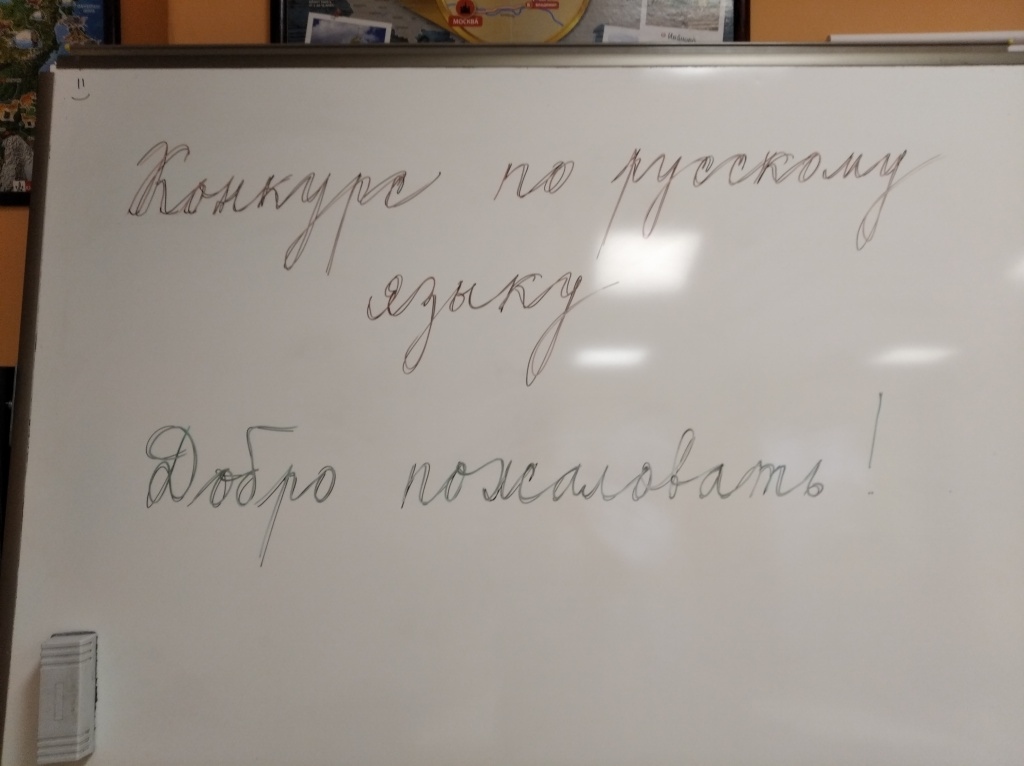 МОСКВА
Конкурс по русскому
языку
Добро пожаловать!